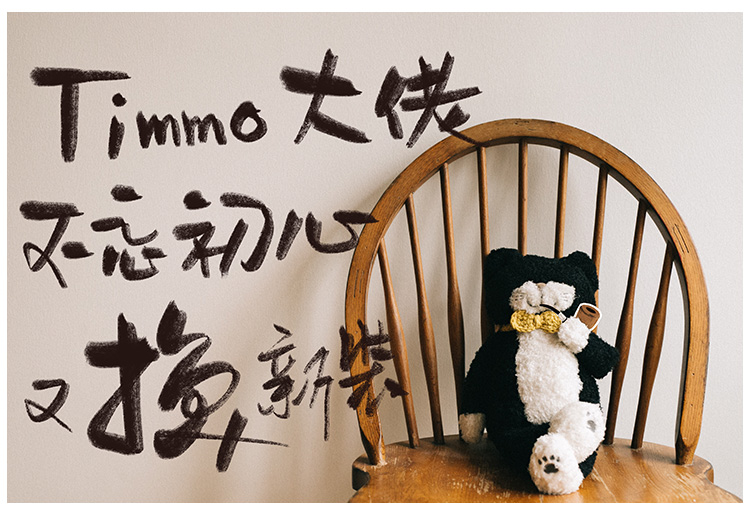 Timmo大佬
不忘初心
又换新装